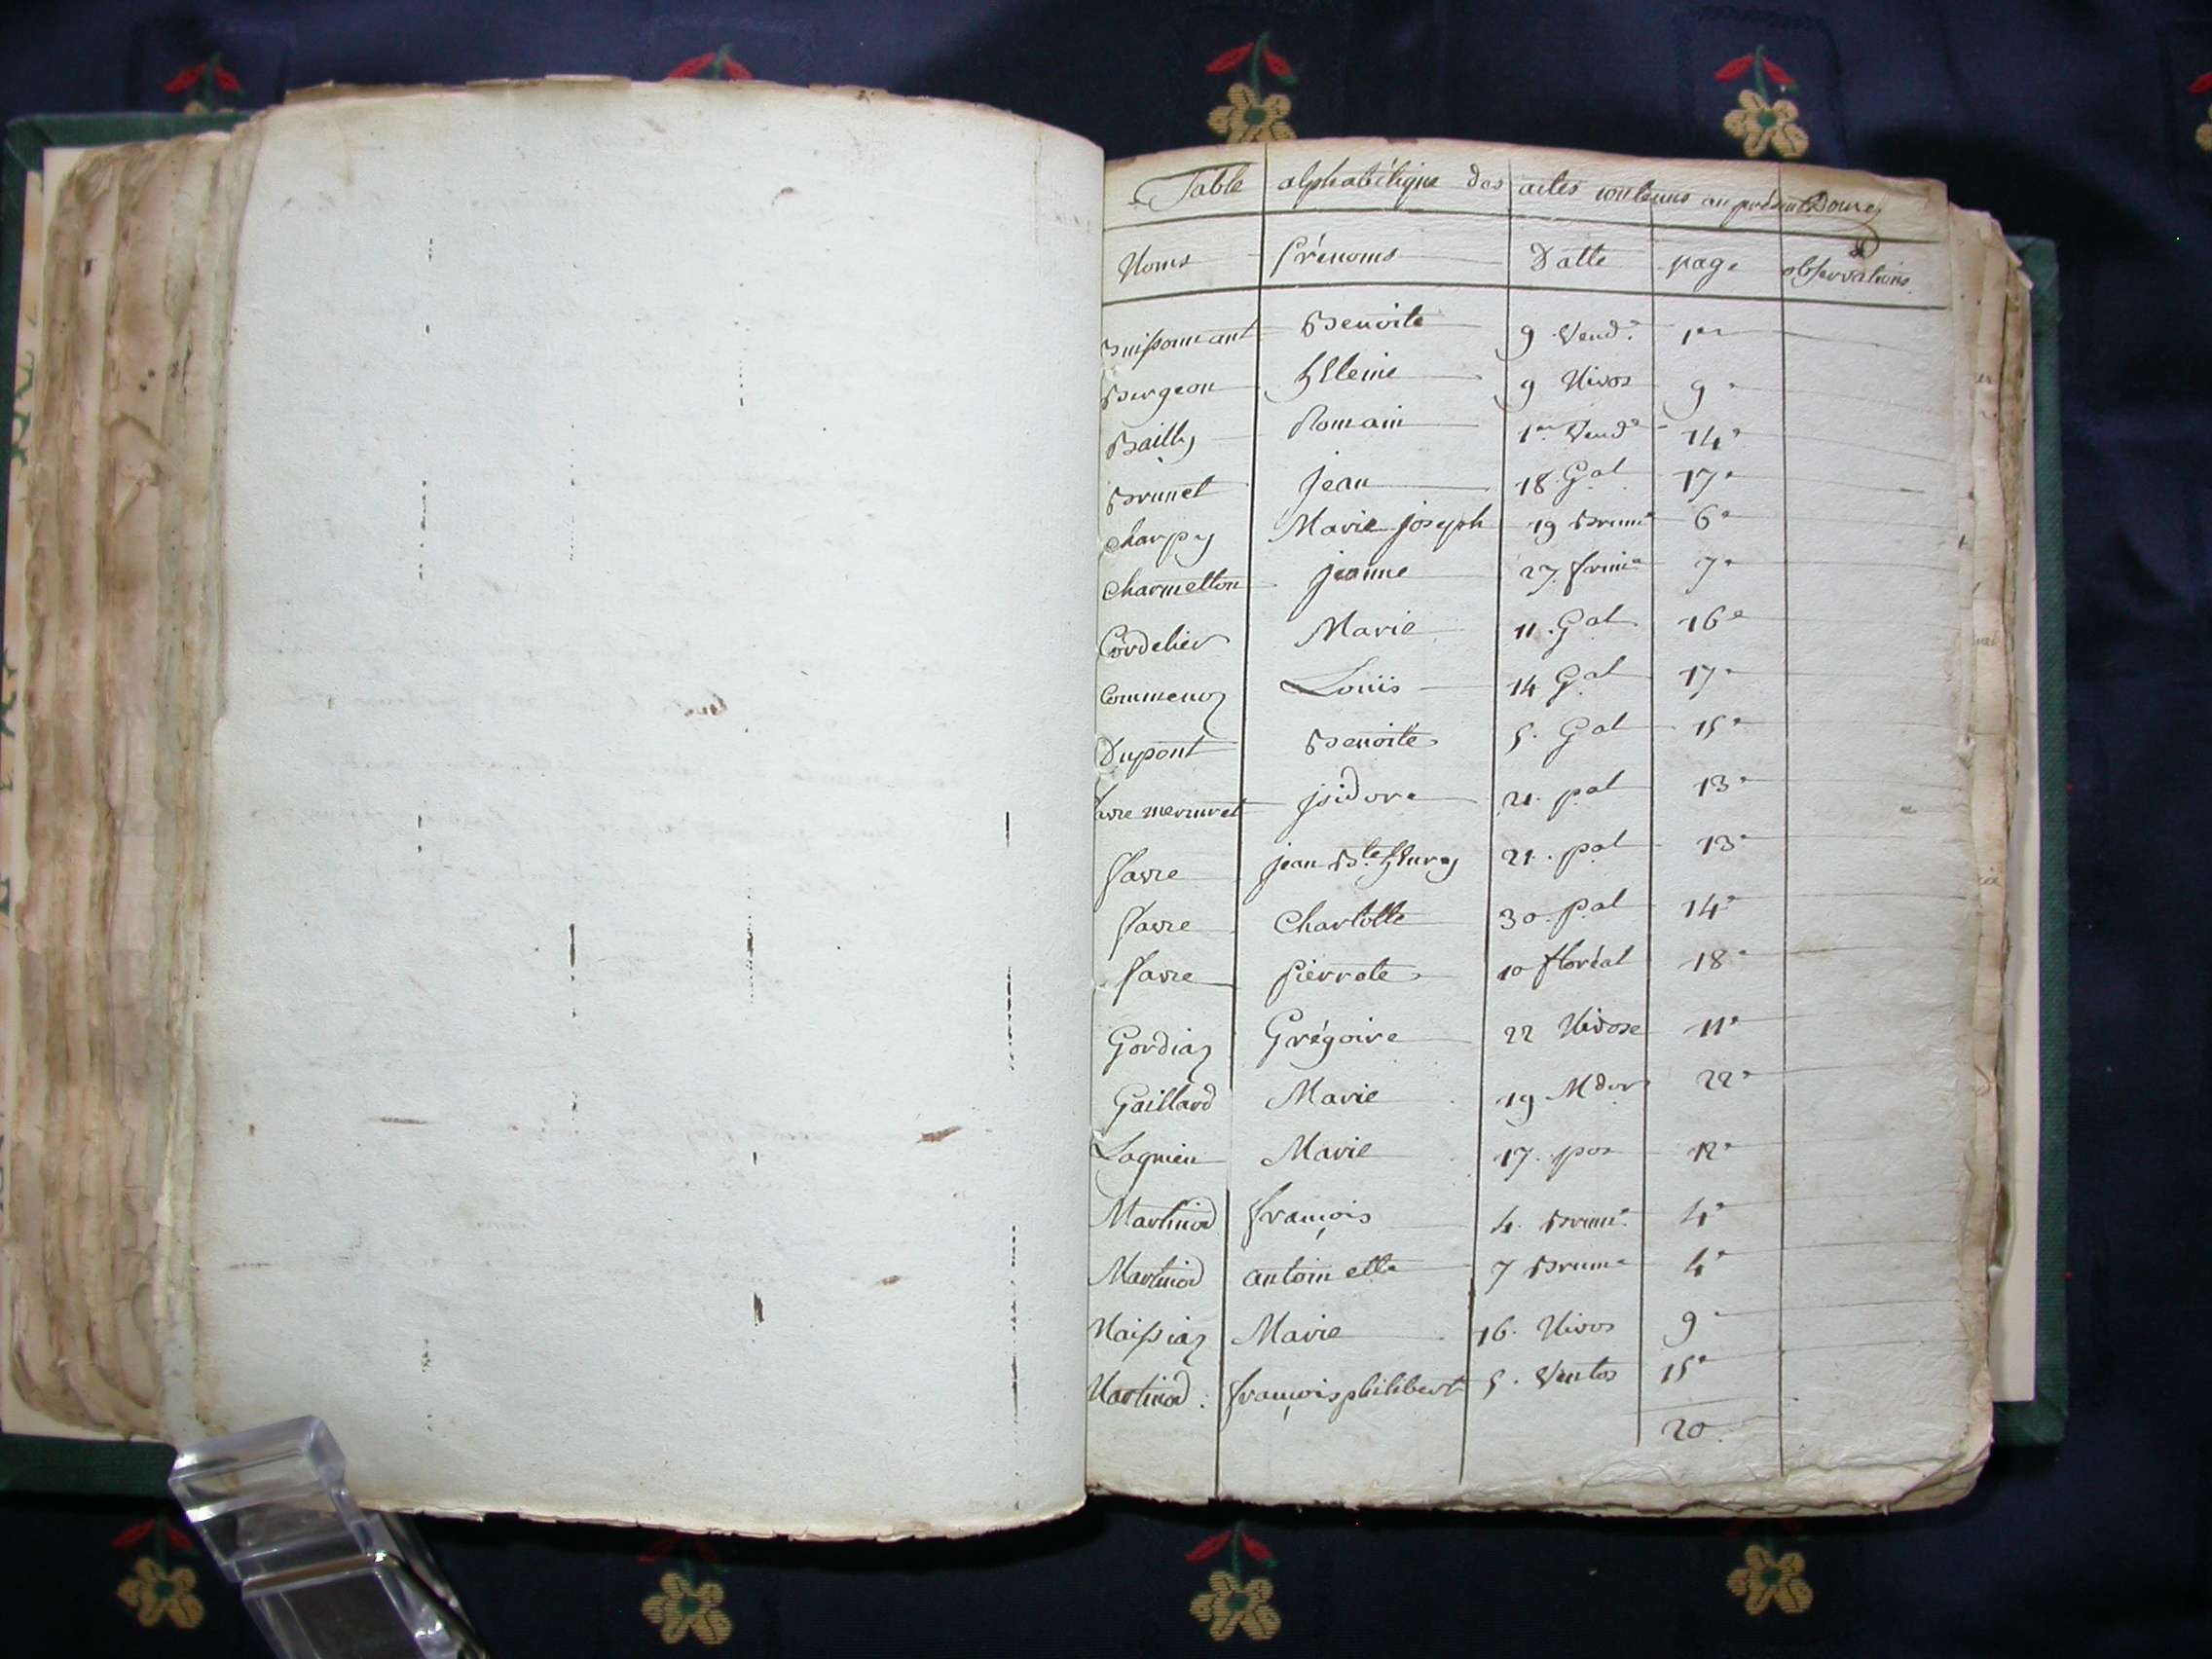 Table alphabétique des actes contenus au présent
Noms Prénoms Datte page observations
Buissonnant Benoite 9 Vend.e 1er
Burgeon Hleine 9 Nivos 9e
Bailly Romain 1er Vend.e 14e
Brunet Jean 18 Gal 17e
Charpy Marie Joseph 19 Brum.e 6e
Charmetton Jeanne 27 frim.e 7e
Cordelier Marie 11 Gal 16e
Commenoz Louis 14 Gal 17e
Dupont Benoite 5 Gal 15e
favre mermet jsidore 21 pal 13e
favre jean Bte hEnry 21 pal 13e
favre Charlotte 30 pal 14e
favre pierrote 10 floréal 18e
Gordiaz Grégoire 22 Nivose 11e
Gaillard Marie 19 Mdor 22e
Lagnieu Marie 17 pos 12e
Martinod françois 4 Brum.e 4e
Martinod antoinette 7 Brum.e 4e
Naissiaz Marie 16 Nivos 9e
Martinod françois philibert 5 Ventos 15e
20